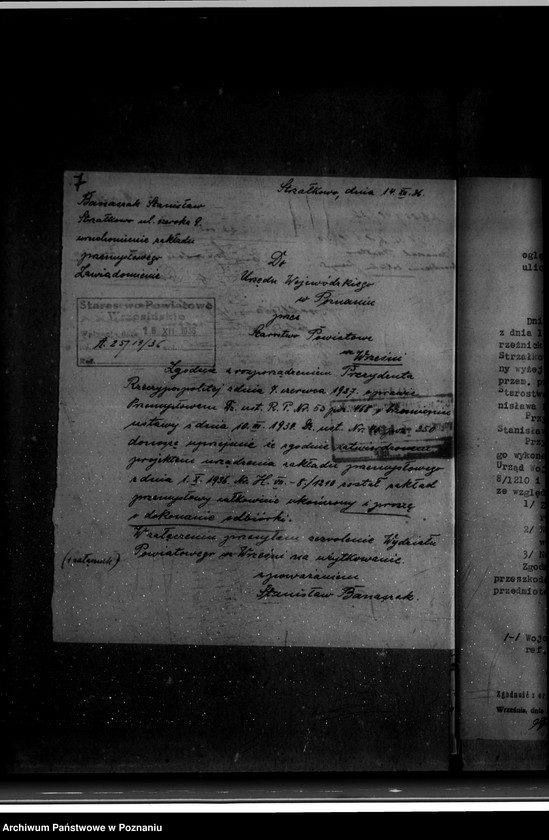 7
Strzałkowo, dnia 14 XII. 36.
Banaszak Stanisław
Strzałkowo ul. szeroka 9.
uruchomienie zakładu
przemysłowego
Zawiadomienie
Do
Urzędu Wojewódzkiego
w Poznaniu
przez
Starostwo Powiatowe
we Wrześni
Starostwo Powiatowe
Wrzesińskie
XII
Zgodnie z rozporządzeniem Prezydenta
Rzeczypospolitej z dnia 7. czerwca 1927. o prawie
Przemysłowem Dz. ust. R. P. Nr. 53 poz. 468 i
ustawy z dnia 10. III. 1934. Dz. ust. Nr. 40 poz. 350
donoszę uprzejmie że zgodnie zatwierdzonem
projektem urządzenia zakładu przemysłowego
z dnia 1. X. 1936. Nr. H. VII. - 8/1210 został zakład
przemysłowy całkowicie ukończony i proszę
o dokonanie odbiórki.
W załączeniu przesyłam zezwolenie Wydziału
Powiatowego we Wrześni na użytkowanie.
(załącznik)
z poważaniem
Stanisław Banaszak.
oglę
ulic
Dni
z dnia 1
rzeźnick
Strzałko
ny wyżej
przem. p
Starostw
nisława
Prz
Stanisław
Przy
go wykon
Urząd Woj
8/1210 i
ze wzglę
1/
2/
w
3/
Zgod
przeszkod
przedmiot
1-1 Wojo
ref.
Zgodność z or
Września, dnia
Archiwum Państwowe w Poznaniu